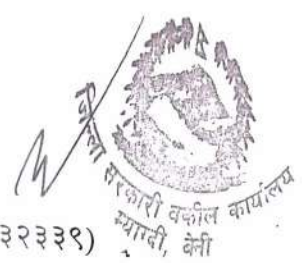 जिल्ला सरकारी वकील कार्यालय
म्याग्दी, बेनी
३२३३९)